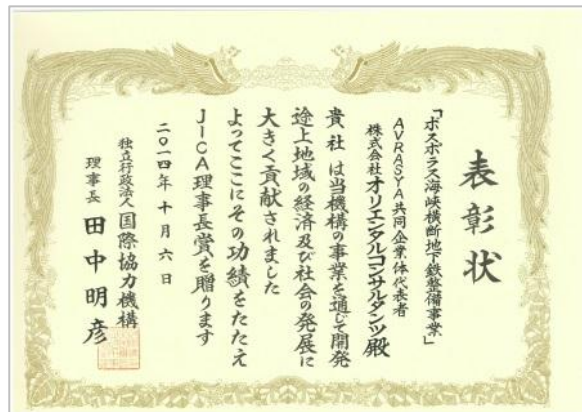 表彰状
「ボスポラス海峡横断地下鉄整備事業」
AVRASYA共同企業体代表者
株式会社オリエンタルコンサルタンツ殿
貴社は当機構の事業を通じて開発
途上地域の経済及び社会の発展に
大きく貢献されました
よってここにその功績をたたえ
JICA理事長賞を贈ります
二〇一四年十月六日
独立行政法人国際協力機構
理事長 田中明彦